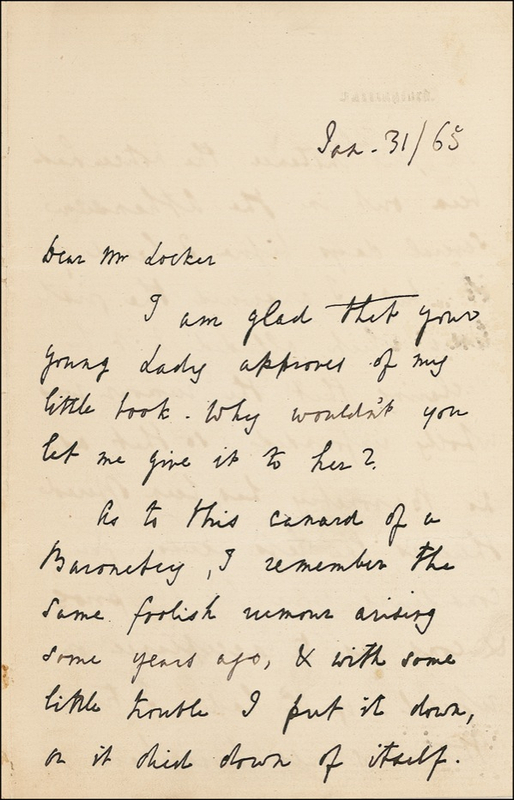 Jan. 31/65
Dear Mr Locker
I am glad that your
young Lady approves of my
little book. Why wouldn't you
let me give it to her?
As to this canard of a
Baronetcy, I remember the
same foolish rumour arising
some years ago, & with some
little trouble I put it down,
or it died down of itself.